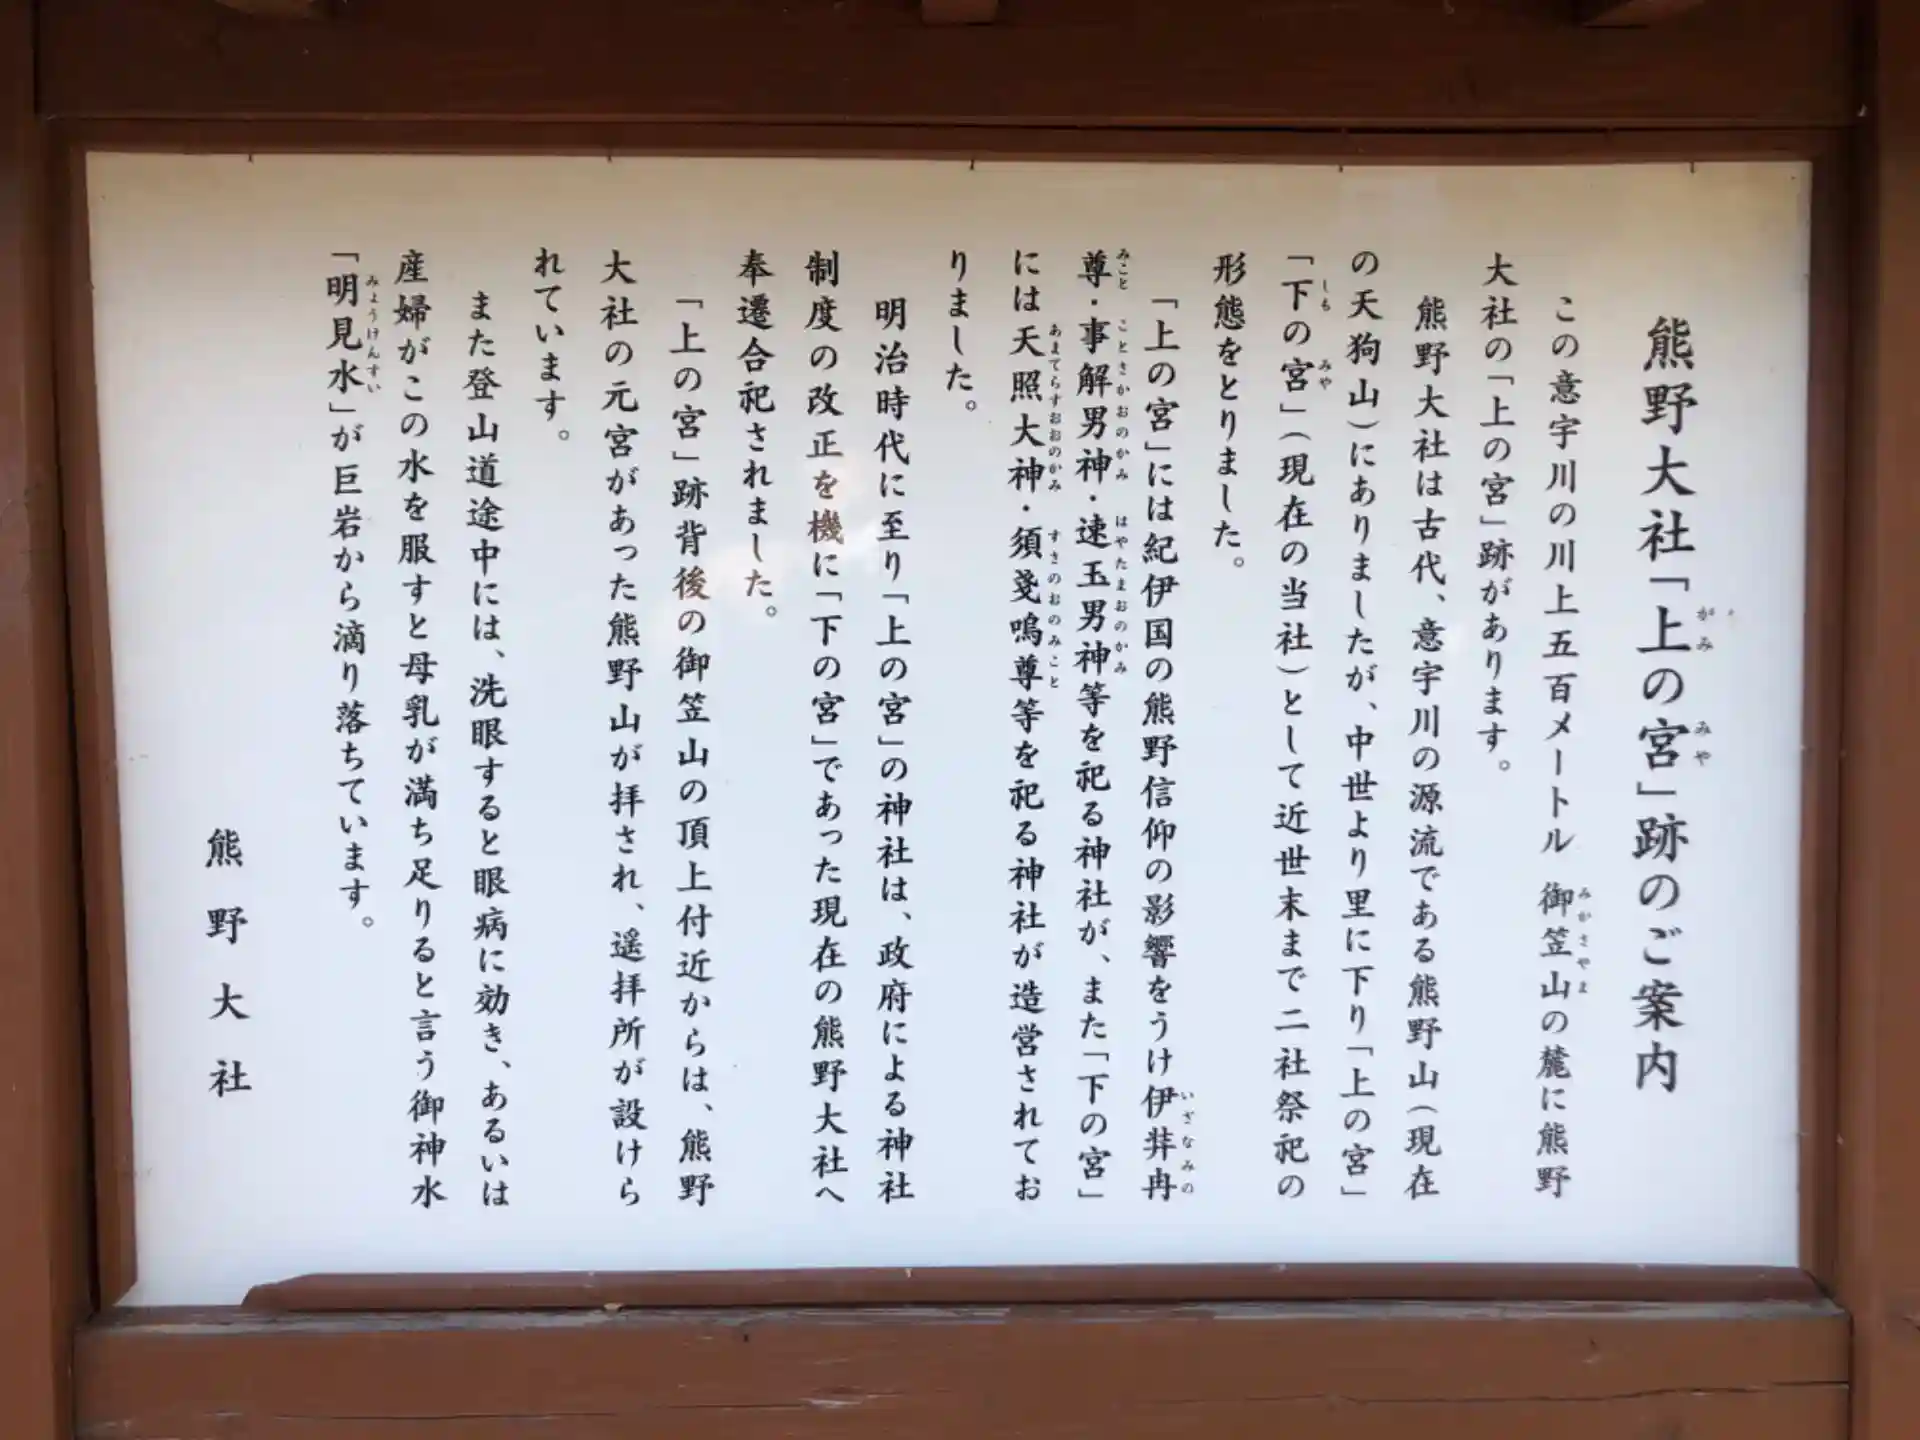 熊野大社「上の宮」跡のご案内
この意宇川の川上五百メートル 御笠山の麓に熊野
大社の「上の宮」跡があります。
熊野大社は古代、意宇川の源流である熊野山(現在
の天狗山)にありましたが、中世より里に下り「上の宮」
「下の宮」(現在の当社)として近世末まで二社祭祀の
形態をとりました。
「上の宮」には紀伊国の熊野信仰の影響をうけ伊弉冉
尊・事解男神・速玉男神等を祀る神社が、また「下の宮」
には天照大神・須戔嗚尊等を祀る神社が造営されてお
りました。
明治時代に至り「上の宮」の神社は、政府による神社
制度の改正を機に「下の宮」であった現在の熊野大社へ
奉遷合祀されました。
「上の宮」跡背後の御笠山の頂上付近からは、熊野
大社の元宮があった熊野山が拝され、遥拝所が設けら
れています。
また登山道途中には、洗眼すると眼病に効き、あるいは
産婦がこの水を服すと母乳が満ち足りると言う御神水
「明見水」が巨岩から滴り落ちています。
熊野大社